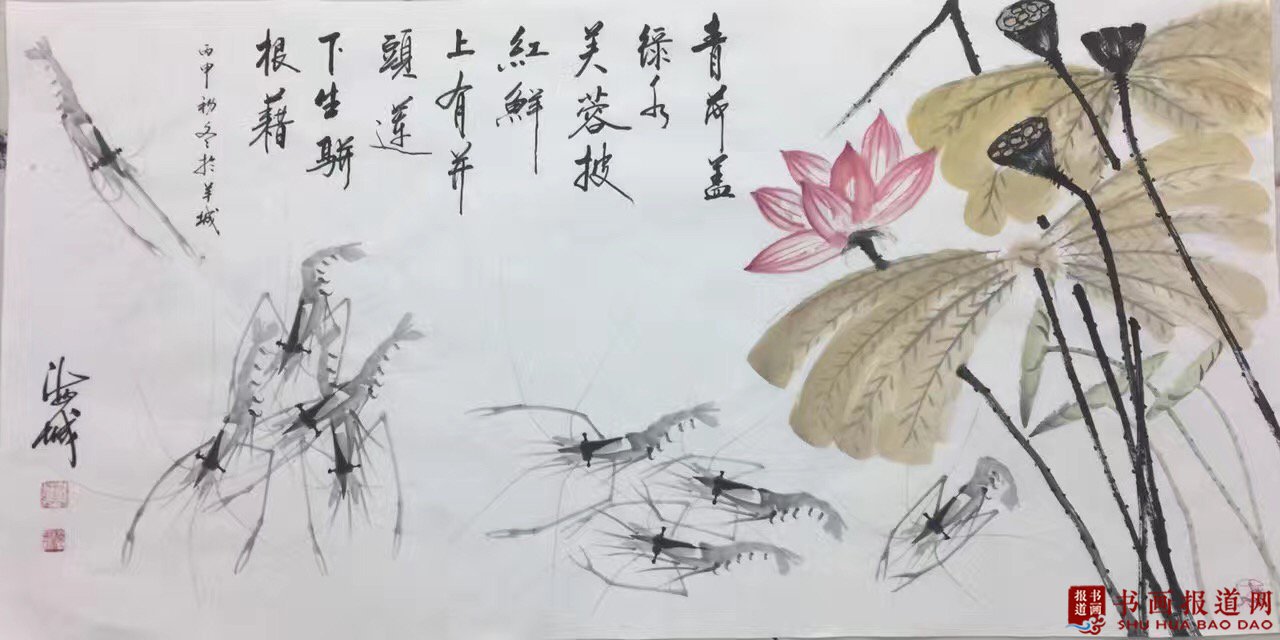 青荷盖
绿水
芙蓉披
紅鮮
上有并
頭蓮
下生駢
根藕
丙申初冬於羊城
海城
书画
报道
书画报道网
SHU HUA BAO DAO